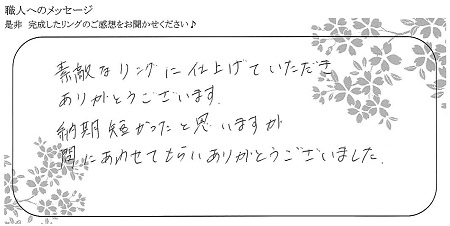 職人へのメッセージ
是非 完成したリングのご感想をお聞かせください♪
素敵なリングに仕上げていただき
ありがとうございます.
納期短かったと思いますが
間にあわせてもらいありがとうございました.